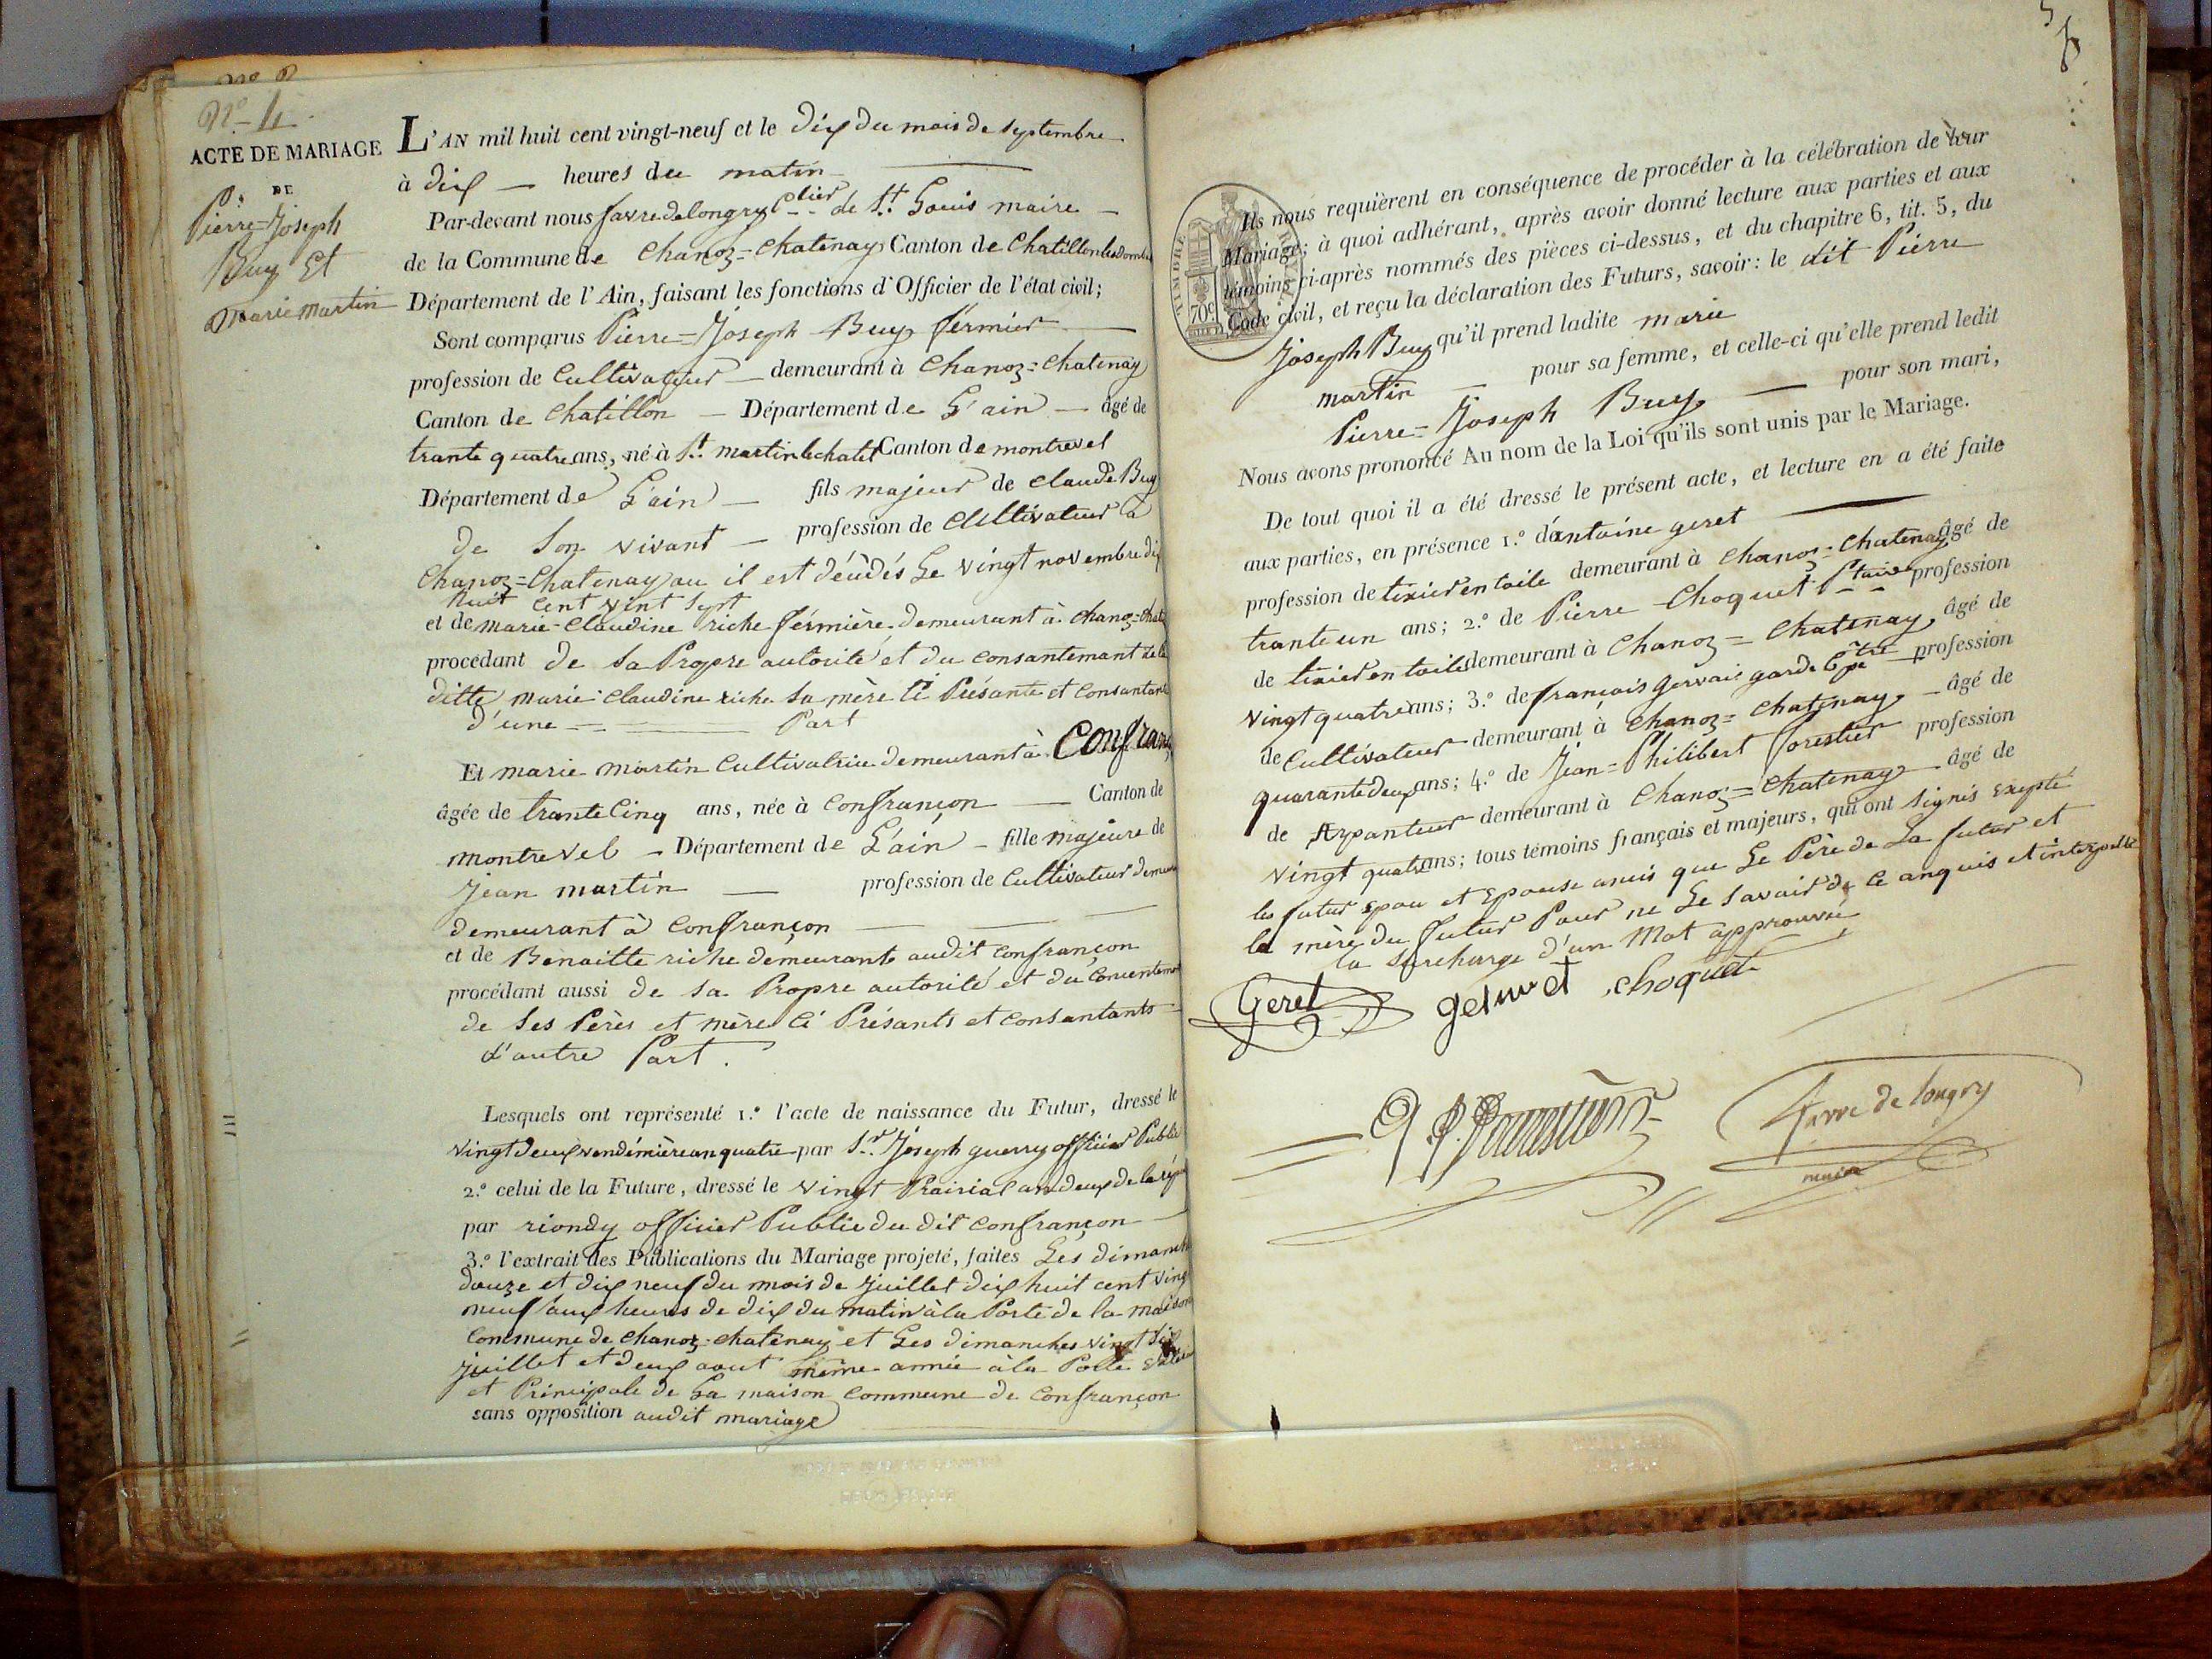 N° 4
ACTE DE MARIAGE
DE
Pierre=Joseph
Buy Et
marie martin
L'AN mil huit cent vingt-neuf et le dix du mois de septembre
à dix — heures du matin
Par-devant nous favre de longry Clier de St. Louis maire
de la Commune de Chanoz=Chatenay Canton de Chatillon les Dombe
Département de l'Ain, faisant les fonctions d'Officier de l'état civil;
Sont comparus Pierre=Joseph Buy fermier
profession de Cultivateur — demeurant à Chanoz=Chatenay
Canton de Chatillon — Département de L'ain — âgé de
trante quatre ans, né à St. martin le chatel Canton de montrevel
Département de L'ain — fils majeur de Claude Buy
de Son vivant — profession de Cultivateur à
Chanoz=Chatenay ou il est décédés Le vingt novembre dix
huit Cent vint sept
et de marie-Claudine riche fermière demeurant à Chanoz=Chat
procédant de Sa Propre autorité et du consantemant de la
ditte marie-Claudine riche Sa mère ci Présante et Consantante
d'une — Part
Et marie martin Cultivatrice demeurant à Confranç
âgée de trante Cinq ans, née à Confrançon — Canton de
montrevel — Département de L'ain — fille majeure de
Jean martin — profession de Cultivateur demeu
demeurant à Confrançon
et de Benaitte riche demeurante audit Confrançon
procédant aussi de Sa Propre autorité et du Concentement
de Ses Pères et mère Ci Présants et Consantants
d'autre Part.
Lesquels ont représenté 1.° l'acte de naissance du Futur, dressé le
vingt deux vendémière an quatre par Sr. Joseph guerry officier Public
2.° celui de la Future, dressé le vingt Prairial an deux de la rép
par riondy officier Public du dit Confrançon
3.° l'extrait des Publications du Mariage projeté, faites Les dimanche
douze et dix neuf du mois de juillet dix huit cent ving
neuf aux heures de dix du matin à la Porte de la maison
Commune de Chanoz-Chatenay et Les dimanches vingt six
juillet et deux aout même année à la Porte
et Principale de La maison Commune de Confrançon
sans opposition audit mariage
Ils nous requièrent en conséquence de procéder à la célébration de leur
Mariage; à quoi adhérant, après avoir donné lecture aux parties et aux
témoins ci-après nommés des pièces ci-dessus, et du chapitre 6, tit. 5, du
Code civil, et reçu la déclaration des Futurs, savoir: le dit Pierre
Joseph Buy qu'il prend ladite marie
martin — pour sa femme, et celle-ci qu'elle prend ledit
Pierre=Joseph Buy — pour son mari,
Nous avons prononcé Au nom de la Loi qu'ils sont unis par le Mariage.
De tout quoi il a été dressé le présent acte, et lecture en a été faite
aux parties, en présence 1.° d'antoine geret
profession de tixier en toile demeurant à Chanoz=Chatenay âgé de
trante un ans; 2.° de Pierre Choquet Ptaire profession
de tixier en toile demeurant à Chanoz=Chatenay, âgé de
vingt quatre ans; 3.° de françois gervais garde profession
de Cultivateur demeurant à Chanoz=Chatenay — âgé de
quarante deux ans; 4.° de Jean=Philibert forestier profession
de Arpanteur demeurant à Chanoz=Chatenay âgé de
vingt quatre ans; tous témoins français et majeurs, qui ont signés exepté
les futur epou et Epouse ainsi que Le Père de La futur et
la mère du futur Pour ne Le Savoir de Ce anquis et interpellé
la Surcharge d'un Mot approuvée
TIMBRE
ROYAL
70c
Geret
choquet
favre de longry
maire